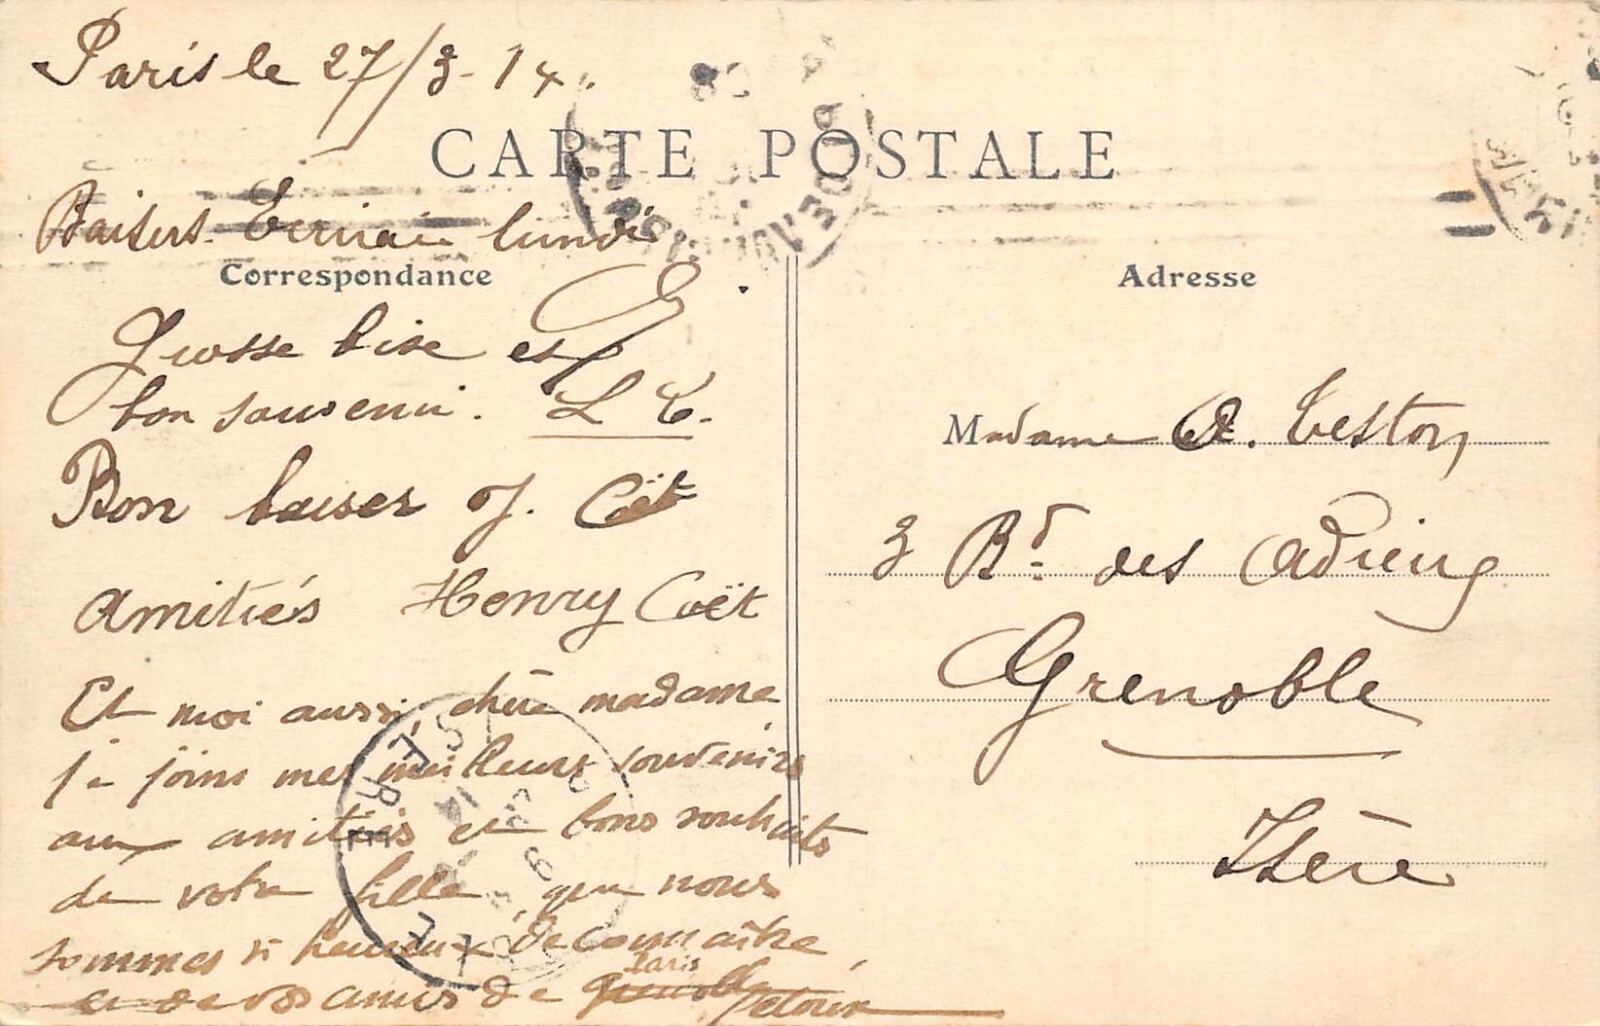 Paris le 27/3-14.
CARTE POSTALE
Baisers. Ecrirai lundi
Correspondance
Grosse bise et
bon souvenir. L T.
Bon baiser J. Coët
Amitiés Henry Coët
Et moi aussi, chère madame
je joins mes meilleurs souvenirs
aux amitiés et bons souhaits
de votre fille, que nous
sommes si heureux de connaitre,
et de vos amis de Grenoble Paris
Adresse
Madame A. Teston
3 Bd. des Adieux
Grenoble
Isère